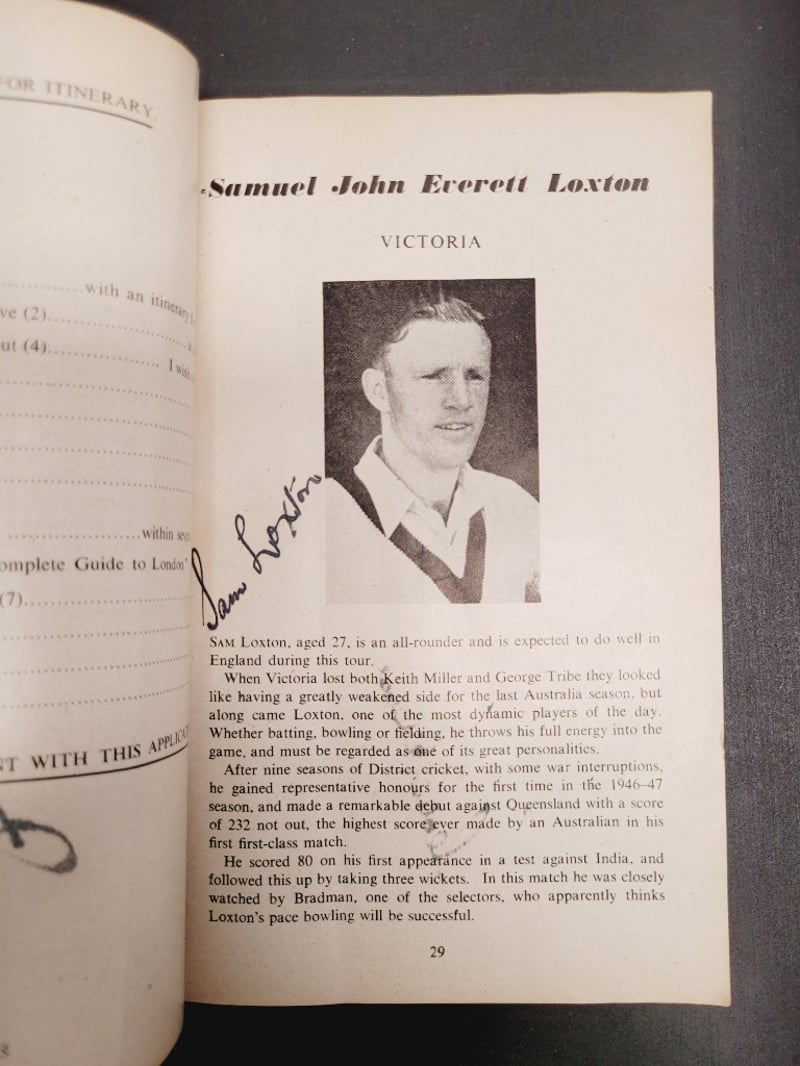 FOR ITINERARY.
with an itinerary
ve (2)
ut (4)
I
within
omplete Guide to London'
(7)
NT WITH THIS
Samuel John Everett Loxton
VICTORIA
Sam Loxton
SAM LOXTON, aged 27, is an all-rounder and is expected to do well in
England during this tour.
When Victoria lost both Keith Miller and George Tribe they looked
like having a greatly weakened side for the last Australia season, but
along came Loxton, one of the most dynamic players of the day.
Whether batting, bowling or fielding, he throws his full energy into the
game, and must be regarded as one of its great personalities.
After nine seasons of District cricket, with some war interruptions,
he gained representative honours for the first time in the 1946–47
season, and made a remarkable debut against Queensland with a score
of 232 not out, the highest score ever made by an Australian in his
first first-class match.
He scored 80 on his first appearance in a test against India, and
followed this up by taking three wickets. In this match he was closely
watched by Bradman, one of the selectors, who apparently thinks
Loxton's pace bowling will be successful.
29